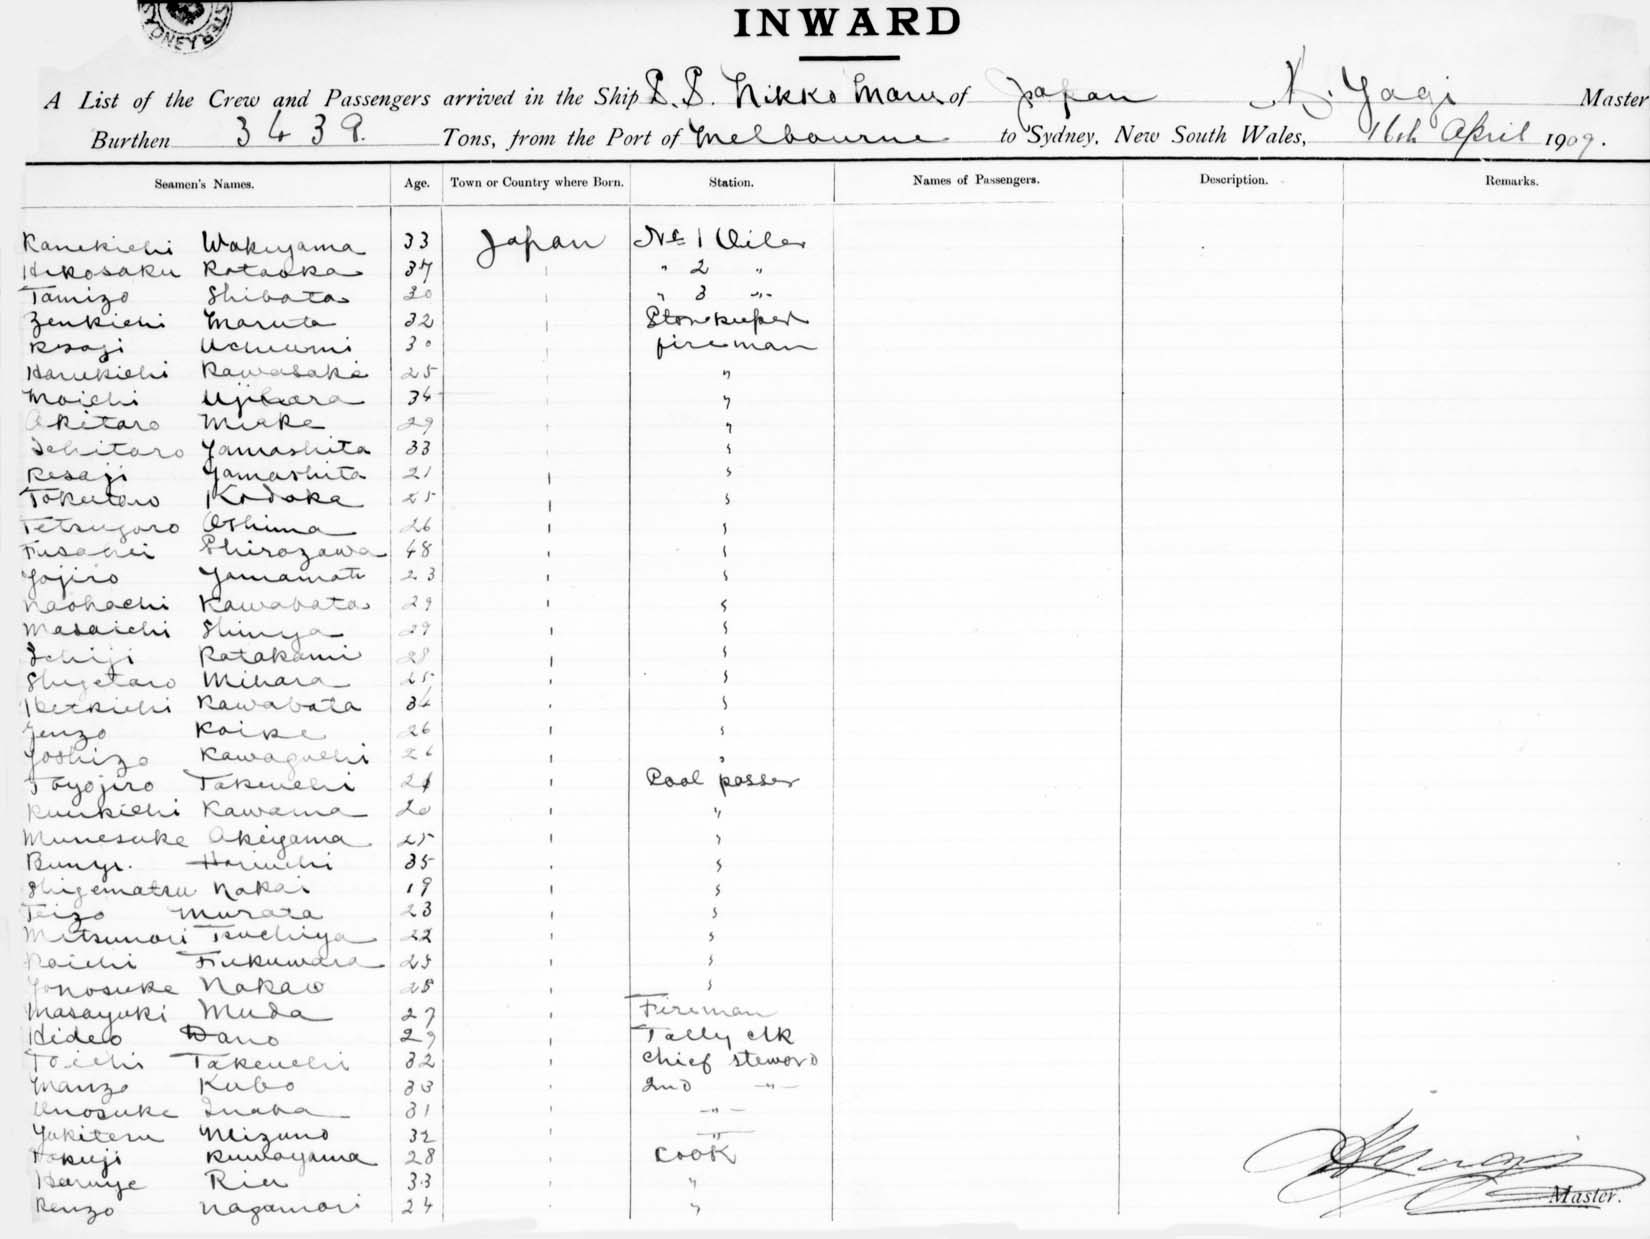 SYDNEY
INWARD
A List of the Crew and Passengers arrived in the Ship S.S. Nikko Maru of Japan K. Yagi Master
Burthen 3439. Tons, from the Port of Melbourne to Sydney, New South Wales, 16th April 1909.
Seamen's Names. Age. Town or Country where Born. Station. Names of Passengers. Description. Remarks.
Kanekichi Wakuyama 33 Japan No 1 Oiler
Hikosaku Kataoka 37 " 2 "
Tamizo Shibata 30 " 3 "
Zenkichi Maruta 32 Storekeeper
Kesaji Uchiumi 30 fireman
Harukichi Kawasaki 25 "
Moichi Ujihara 34 "
Akitaro Miake 29 "
Ichitaro Yamashita 33 "
Kesaji Yamashita 21 "
Tokutaro Kodaka 25 "
Tetsugoro Oshima 26 "
Fusakei Shirozawa 48 "
Yojiro Yamamoto 23 "
Naohachi Kawabata 29 "
Masaichi Shinya 29 "
Ichiji Katakami 28 "
Shigetaro Mihara 25 "
Kawabata 34 "
Genzo Koike 26 "
Yoshizo Kawaguchi 26 "
Toyojiro Takeuchi 21 Coal passer
Kunikichi Kawama 20 "
Munesuke Akiyama 25 "
Bunji Horiuchi 35 "
Shigematsu Nakai 19 "
Teizo Murata 23 "
Mitsunori Tsuchiya 22 "
Koichi Fukuwara 25 "
Yonosuke Nakao 28 "
Masayuki Muda 27 Fireman
Hideo Dano 29 Tally clk
Toichi Takeuchi 32 Chief steward
Manzo Kubo 33 2nd "
Unosuke Inaba 31 "
Yukiteru Mizuno 32 "
Kuwayama 28 Cook
33 "
Kenzo Nagamori 24 "
Master.